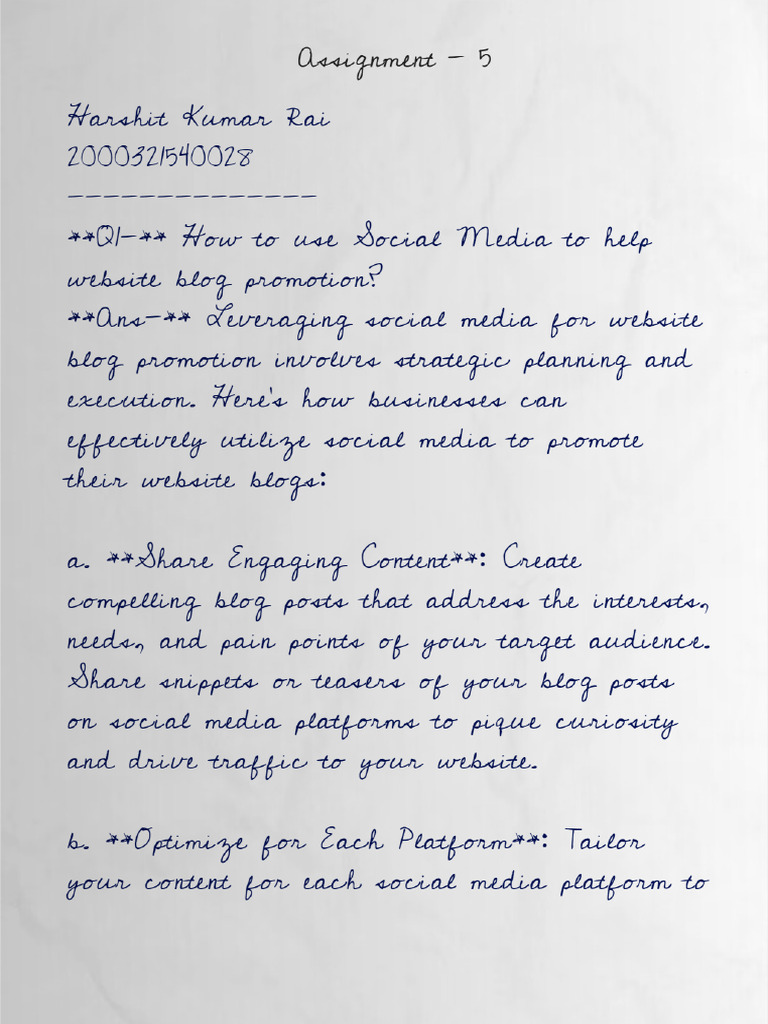 Assignment - 5
Harshit Kumar Rai
2000321540028
--------------
**Q1-** How to use Social Media to help
website blog promotion?
**Ans-** Leveraging social media for website
blog promotion involves strategic planning and
execution. Here's how businesses can
effectively utilize social media to promote
their website blogs:

a. **Share Engaging Content**: Create
compelling blog posts that address the interests,
needs, and pain points of your target audience.
Share snippets or teasers of your blog posts
on social media platforms to pique curiosity
and drive traffic to your website.

b. **Optimize for Each Platform**: Tailor
your content for each social media platform to